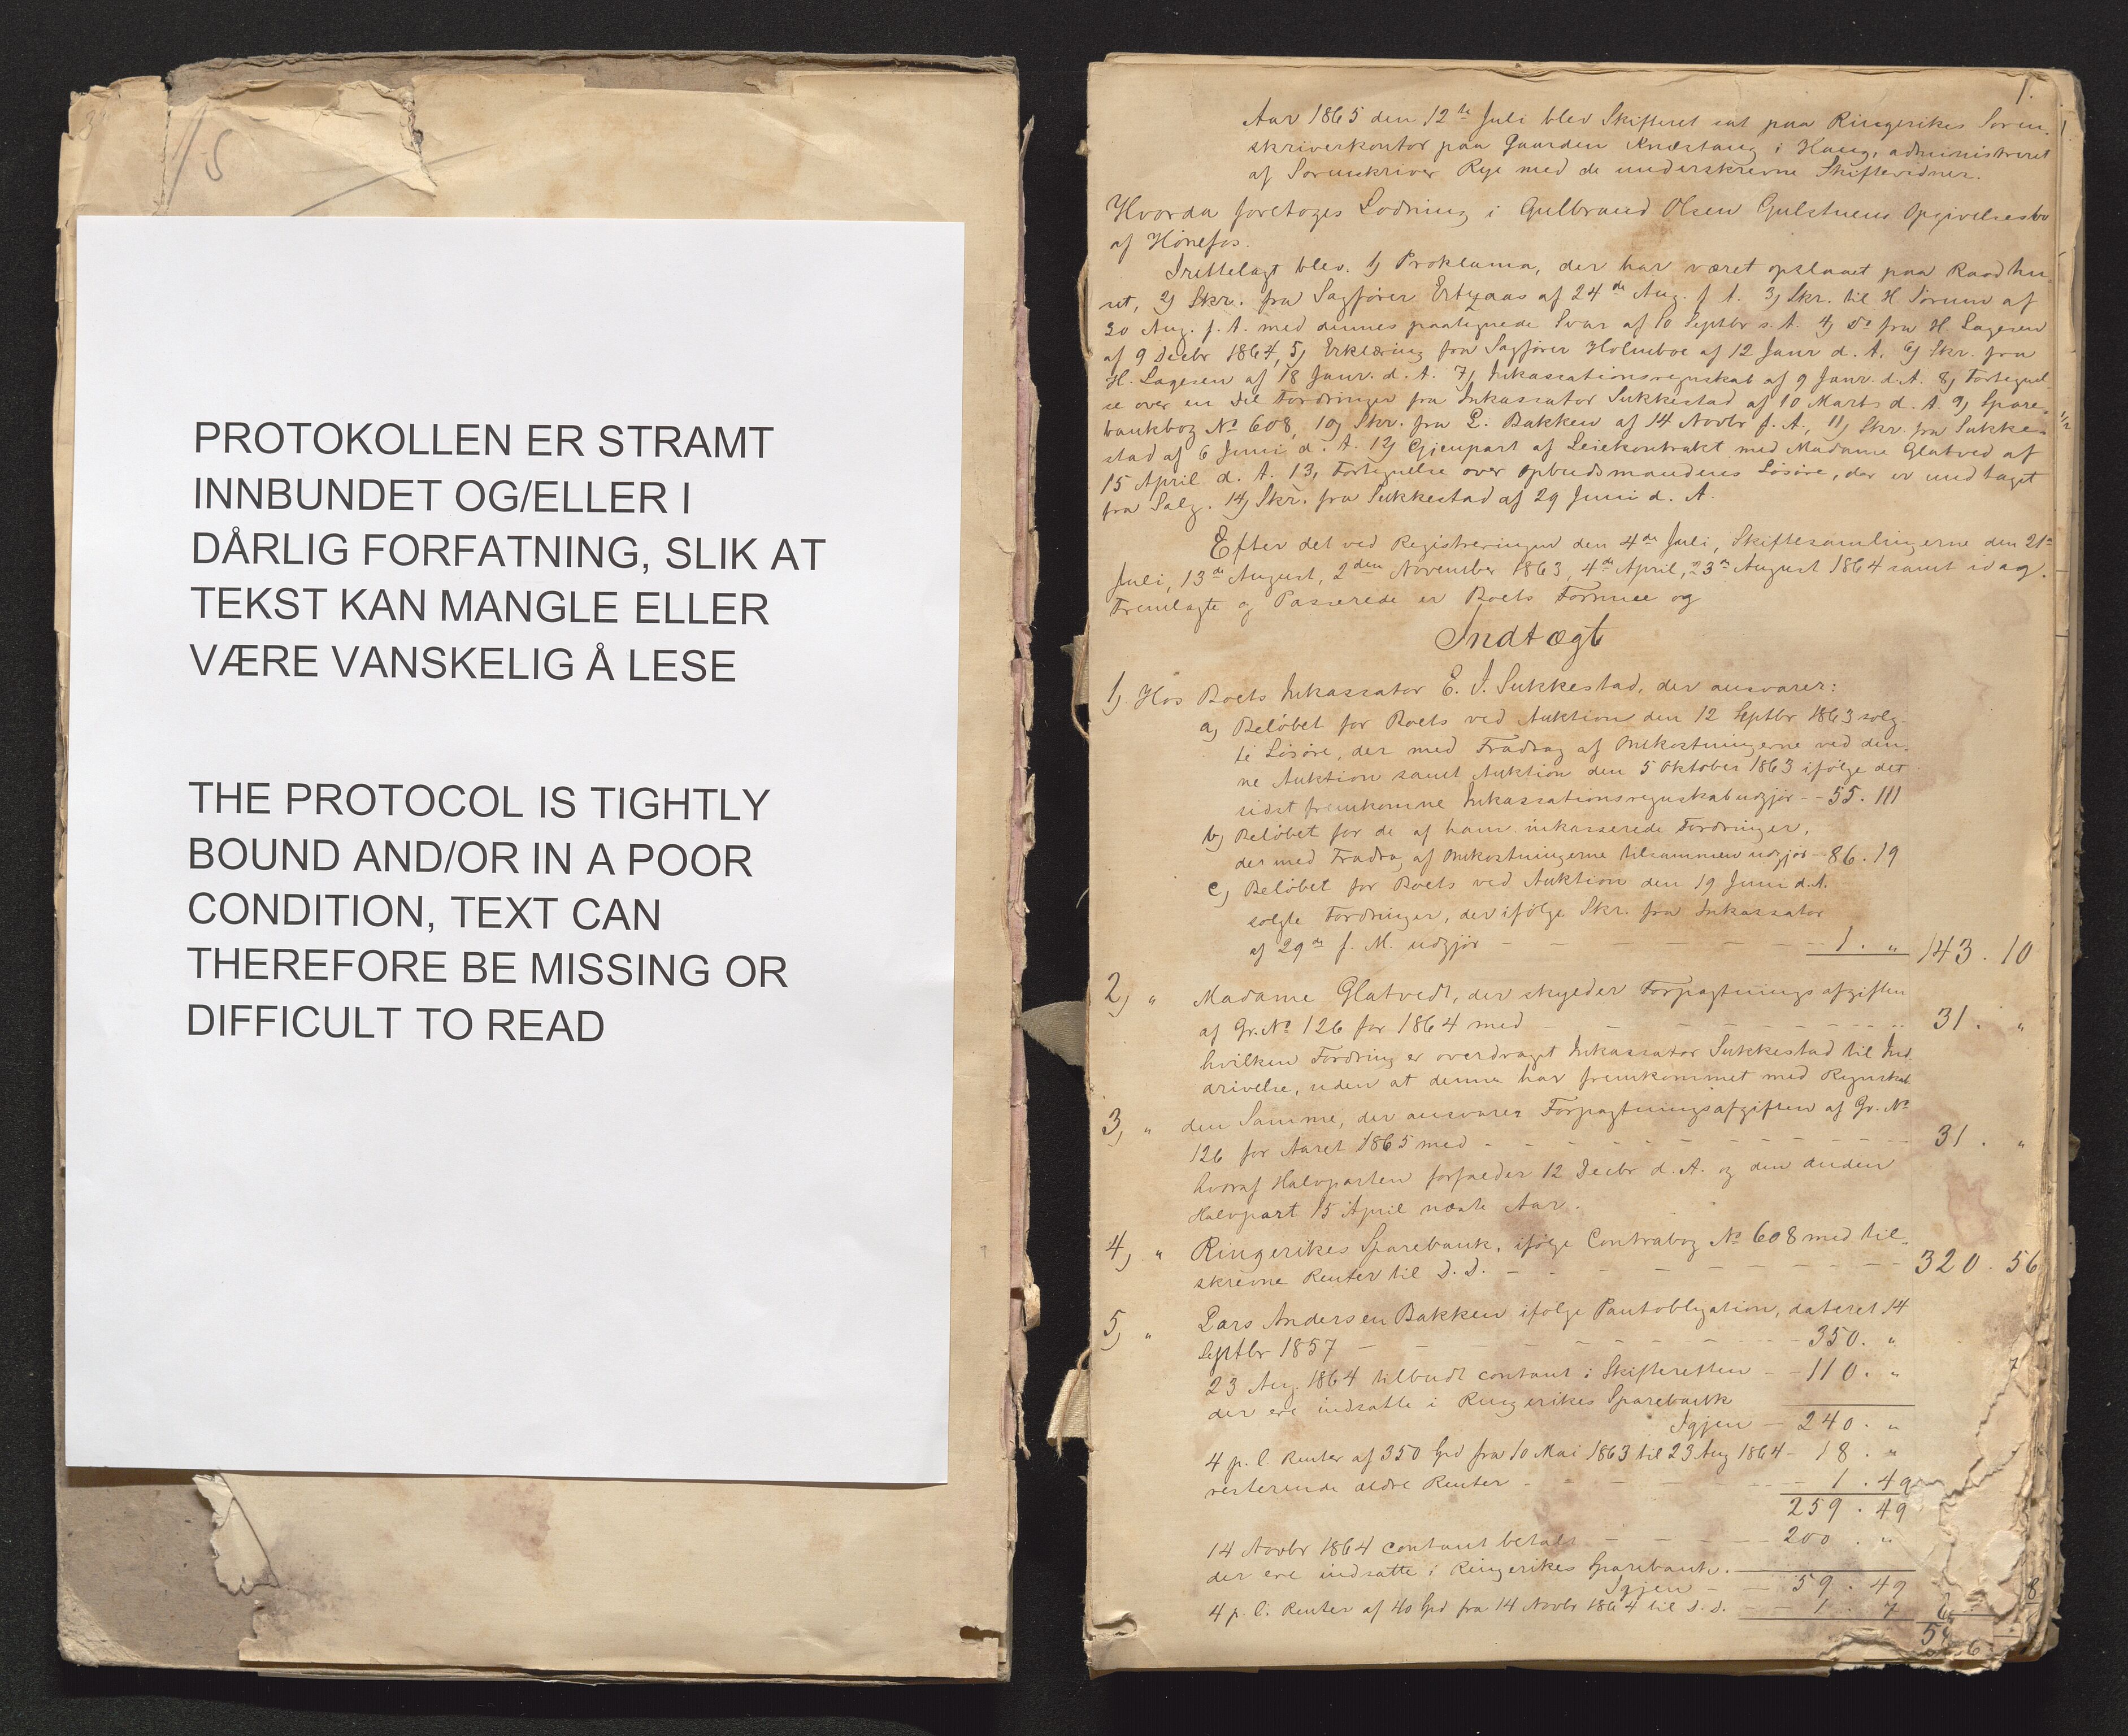 15
PROTOKOLLEN ER STRAMT
INNBUNDET OG/ELLER I
DÅRLIG FORFATNING, SLIK AT
TEKST KAN MANGLE ELLER
VÆRE VANSKELIG Å LESE
THE PROTOCOL IS TIGHTLY
BOUND AND/OR IN A POOR
CONDITION, TEXT CAN
THEREFORE BE MISSING OR
DIFFICULT TO READ
1.
Aar 1865 den 12te Juli blev Skifteret sat paa Ringerikes Soren-
skriverkontor paa Gaarden Knæstang i Haug, administreret
af Sorenskriver Rye med de underskrevne Skiftevidner.
Hvorda foretoges Lodning i Gulbrand Olsen Gulstuens Opgivelsesbo
af Hönefos.
Irettelagt blev. 1) Proklama, der har været opslaaet paa Raadhu-
set, 2) Skr. fra Sagfører af 24de Aug. f. A. 3) Skr. til H. Sörum af
30 Aug. f. A. med dennes paategnede Svar af 10 Septbr s. A. 4) Do fra H. Lagesen
af 9 Decbr 1864, 5) Erklæring fra Sagfører Holmboe af 12 Janr d. A. 6) Skr. fra
H. Lagesen af 18 Janr. d. A. 7) Inkassationsregnskab af 9 Janr. d. A. 8) Fortegnel-
se over en Del Fordringer fra Inkassator Sukkestad af 10 Marts d. A. 9) Spare-
bankbog No 608, 10) Skr. fra L. Bakken af 14 Novbr f. A., 11) Skr. fra Sukke-
stad af 6 Juni d. A. 12) Gjenpart af Leiekontrakt med Madame Glatved af
15 April d. A. 13) Fortegnelse over Opbudsmandens Lösöre, der er undtaget
fra Salg. 14) Skr. fra Sukkestad af 29 Juni d. A.
Efter det ved Registreringen den 4de Juli, Skiftesamlingerne den 21de
Juli, 13de August, 2den November 1863, 4de April, 23de August 1864 samt idag
Fremlagte og Passerede er Boets Formue og
Indtægt
1) Hos Boets Inkassator E. J. Sukkestad, der ansvarer:
a) Belöbet for Boets ved Auktion den 12 Septbr 1863 solg-
te Lösöre, der med Fradrag af Omkostningerne ved den-
ne Auktion samt Auktion den 5 Oktober 1863 ifölge det
sidst fremkomne Inkassationsregnskab udgjör - - 55. 111
b) Belöbet for de af ham inkasserede Fordringer,
der med Fradrag af Omkostningerne tilsammen udgjör - 86. 19
c) Belöbet for Boets ved Auktion den 19 Juni d. A.
solgte Fordringer, der ifölge Skr. fra Inkassator
af 29de f. M. udgjör - - - 1. " 143. 10
2) " Madame Glatvedt, der skylder Forpagtningsafgiften
af Gr. No 126 for 1864 med - - - 31. "
hvilken Fordring er overdraget Inkassator Sukkestad til Ind-
drivelse, uden at denne har fremkommet med Regnskab
3) " den Samme, der ansvarer Forpagtningsafgiften af Gr. No
126 for Aaret 1865 med - - - 31. "
hvoraf Halvparten forfalder 12 Decbr d. A. og den anden
Halvpart 15 April næste Aar.
4) " Ringerikes Sparebank, ifölge Contrabog No 608 med til-
skrevne Renter til D. D. - - - 320. 56
5) " Lars Andersen Bakken ifölge Pantobligation, dateret 14
Septbr 1857 - - - 350. "
23 Aug. 1864 tilbudt contant i Skifteretten - - 110. "
der ere indsatte i Ringerikes Sparebank
Igjen - 240. "
4 p. C. Renter af 350 Spd fra 10 Mai 1863 til 23 Aug 1864 - 18. "
resterende ældre Renter - - - 1. 49
259. 49
14 Novbr 1864 contant betalt - - - 200. "
der ere indsatte i Ringerikes Sparebank.
Igjen - - 59. 49
4 p. C. Renter af 40 Spd fra 14 Novbr 1864 til D. D. - - 1. 7